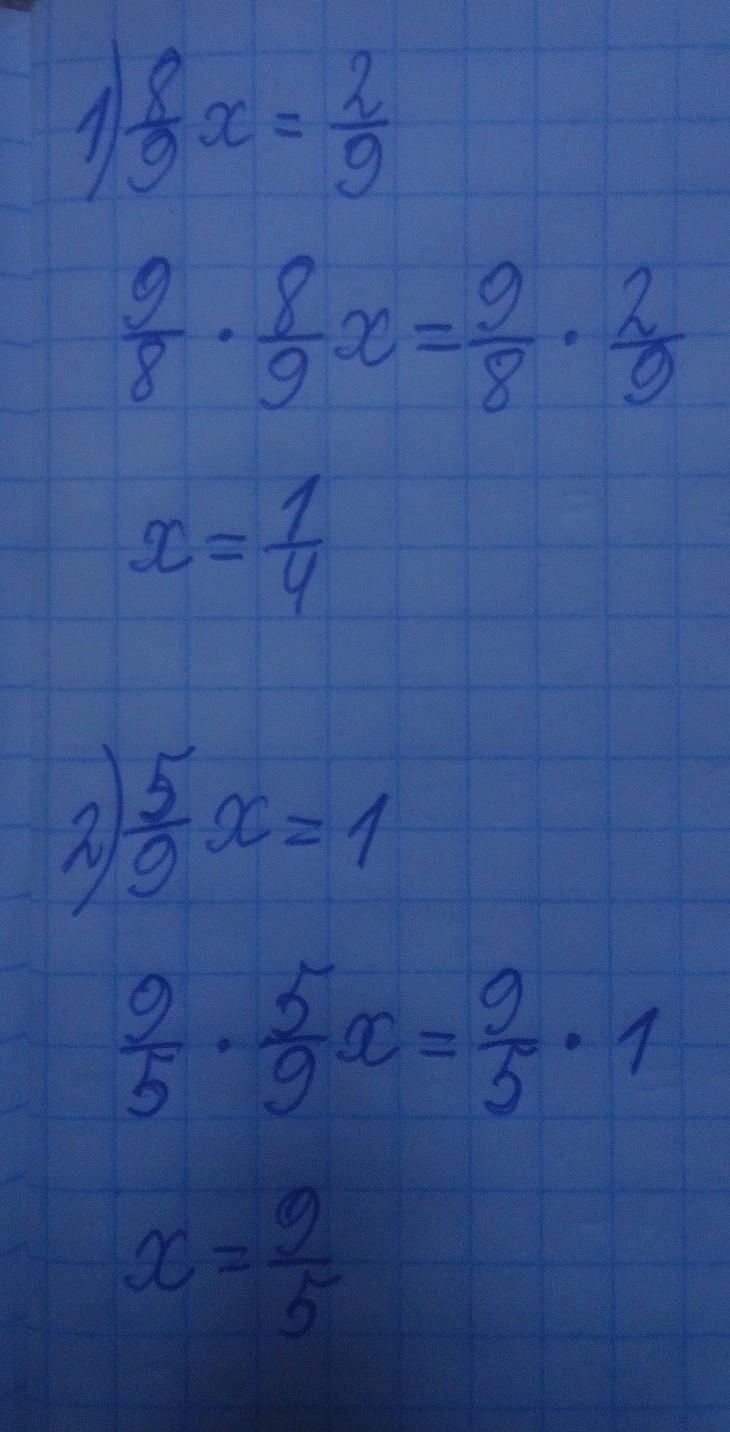 1) 8/9 x = 2/9
9/8 · 8/9 x = 9/8 · 2/9
x = 1/4
2) 5/9 x = 1
9/5 · 5/9 x = 9/5 · 1
x = 9/5